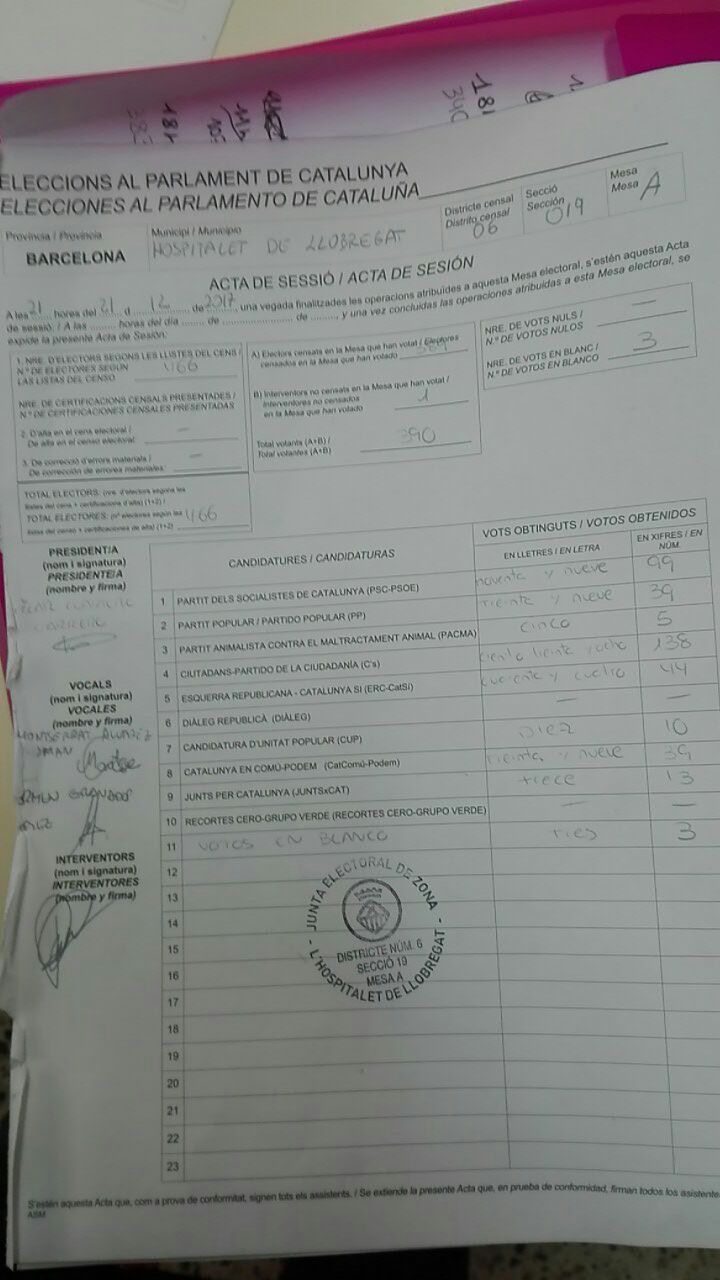 ELECCIONS AL PARLAMENT DE CATALUNYA
ELECCIONES AL PARLAMENTO DE CATALUÑA
Província / Provincia
BARCELONA
Municipi / Municipio
HOSPITALET DE LLOBREGAT
Districte censal
Distrito censal
06
Secció
Sección
019
Mesa
Mesa
A
ACTA DE SESSIÓ / ACTA DE SESIÓN
A les 21 hores del 21 d 12 de 2017, una vegada finalitzades les operacions atribuïdes a aquesta Mesa electoral, s'estén aquesta Acta
de sessió. / A las ........ horas del día ....... de ........................ de ........, y una vez concluidas las operaciones atribuidas a esta Mesa electoral, se
expide la presente Acta de Sesión:
1. NRE. D'ELECTORS SEGONS LES LLISTES DEL CENS /
N.º DE ELECTORES SEGÚN
LAS LISTAS DEL CENSO
466
NRE. DE CERTIFICACIONS CENSALS PRESENTADES /
N.º DE CERTIFICACIONES CENSALES PRESENTADAS
2. D'alta en el cens electoral /
De alta en el censo electoral: —
3. De correcció d'errors materials /
De corrección de errores materiales: —
TOTAL ELECTORS: (nre. d'electors segons les
llistes del cens + certificacions d'alta) (1+2) /
TOTAL ELECTORES: (nº electores según las
listas del censo + certificaciones de alta) (1+2) 466
A) Electors censats en la Mesa que han votat / Electores
censados en la Mesa que han votado
B) Interventors no censats en la Mesa que han votat /
Interventores no censados
en la Mesa que han votado 1
Total votants (A+B) /
Total votantes (A+B) 390
NRE. DE VOTS NULS /
N.º DE VOTOS NULOS —
NRE. DE VOTS EN BLANC /
N.º DE VOTOS EN BLANCO 3
PRESIDENT/A
(nom i signatura)
PRESIDENTE/A
(nombre y firma)
VOCALS
(nom i signatura)
VOCALES
(nombre y firma)
MONTSERRAT
INTERVENTORS
(nom i signatura)
INTERVENTORES
(nombre y firma)
CANDIDATURES / CANDIDATURAS
VOTS OBTINGUTS / VOTOS OBTENIDOS
EN LLETRES / EN LETRA
EN XIFRES / EN NÚM.
1 PARTIT DELS SOCIALISTES DE CATALUNYA (PSC-PSOE) noventa y nueve 99
2 PARTIT POPULAR / PARTIDO POPULAR (PP) treinta y nueve 39
3 PARTIT ANIMALISTA CONTRA EL MALTRACTAMENT ANIMAL (PACMA) cinco 5
4 CIUTADANS-PARTIDO DE LA CIUDADANÍA (C's) ciento treinta y ocho 138
5 ESQUERRA REPUBLICANA - CATALUNYA SÍ (ERC-CatSí) cuarenta y cuatro 44
6 DIÀLEG REPUBLICÀ (DIÀLEG) — —
7 CANDIDATURA D'UNITAT POPULAR (CUP) Diez 10
8 CATALUNYA EN COMÚ-PODEM (CatComú-Podem) treinta y nueve 39
9 JUNTS PER CATALUNYA (JUNTSxCAT) trece 13
10 RECORTES CERO-GRUPO VERDE (RECORTES CERO-GRUPO VERDE) — —
11 VOTOS EN BLANCO tres 3
12
13
14
15
16
17
18
19
20
21
22
23
JUNTA ELECTORAL DE ZONA
DISTRICTE NÚM. 6
SECCIÓ 19
MESA A
- L'HOSPITALET DE LLOBREGAT -
S'estén aquesta Acta que, com a prova de conformitat, signen tots els assistents. / Se extiende la presente Acta que, en prueba de conformidad, firman todos los asistentes
ASM